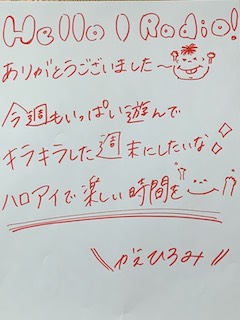 Hello I Radio!
ありがとうございました〜
今週もいっぱい遊んで
キラキラした週末にしたいな
ハロアイで楽しい時間を
\\ かえひろみ //